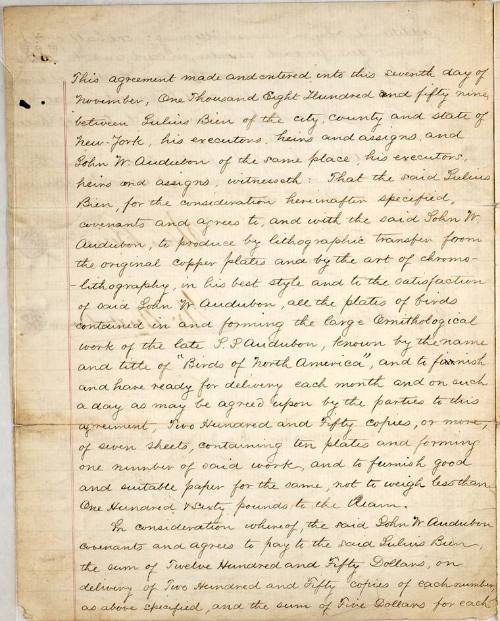 This agreement made and entered into this seventh day of
November, One Thousand Eight Hundred and fifty nine,
between Julius Bien of the city, county and state of
New-York, his executors, heirs and assigns, and
John W. Audubon of the same place, his executors,
heirs and assigns, witnesseth: That the said Julius
Bien, for the consideration hereinafter specified,
covenants and agrees to, and with the said John W.
Audubon, to produce by lithographic transfer from
the original copper plates and by the art of chromo-
-lithography, in his best style and to the satisfaction
of said John W Audubon, all the plates of birds
contained in and forming the large Ornithological
work of the late J. J Audubon, known by the name
and title of "Birds of North America", and to furnish
and have ready for delivery each month and on such
a day as may be agreed upon by the parties to this
agreement, Two Hundred and Fifty copies, or more,
of seven sheets, containing ten plates and forming
one number of said work, and to furnish good
and suitable paper for the same, not to weigh less than
One Hundred & Sixty pounds to the Ream.
In consideration whereof, the said John W Audubon
covenants and agrees to pay to the said Julius Bien
the sum of Twelve Hundred and Fifty Dollars, on
delivery of Two Hundred and Fifty copies of each number,
as above specified, and the sum of Five Dollars for each